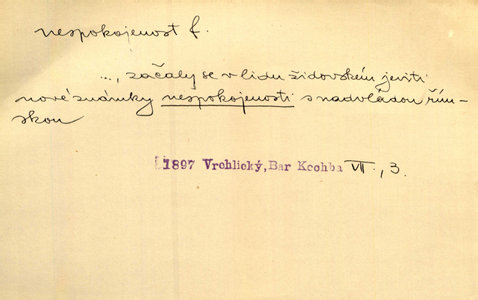 nespokojenost f.
..., začaly se v lidu židovském jeviti
nové známky nespokojenosti s nadvládou řím-
skou
1897 Vrchlický, Bar Kochba VII, 3.